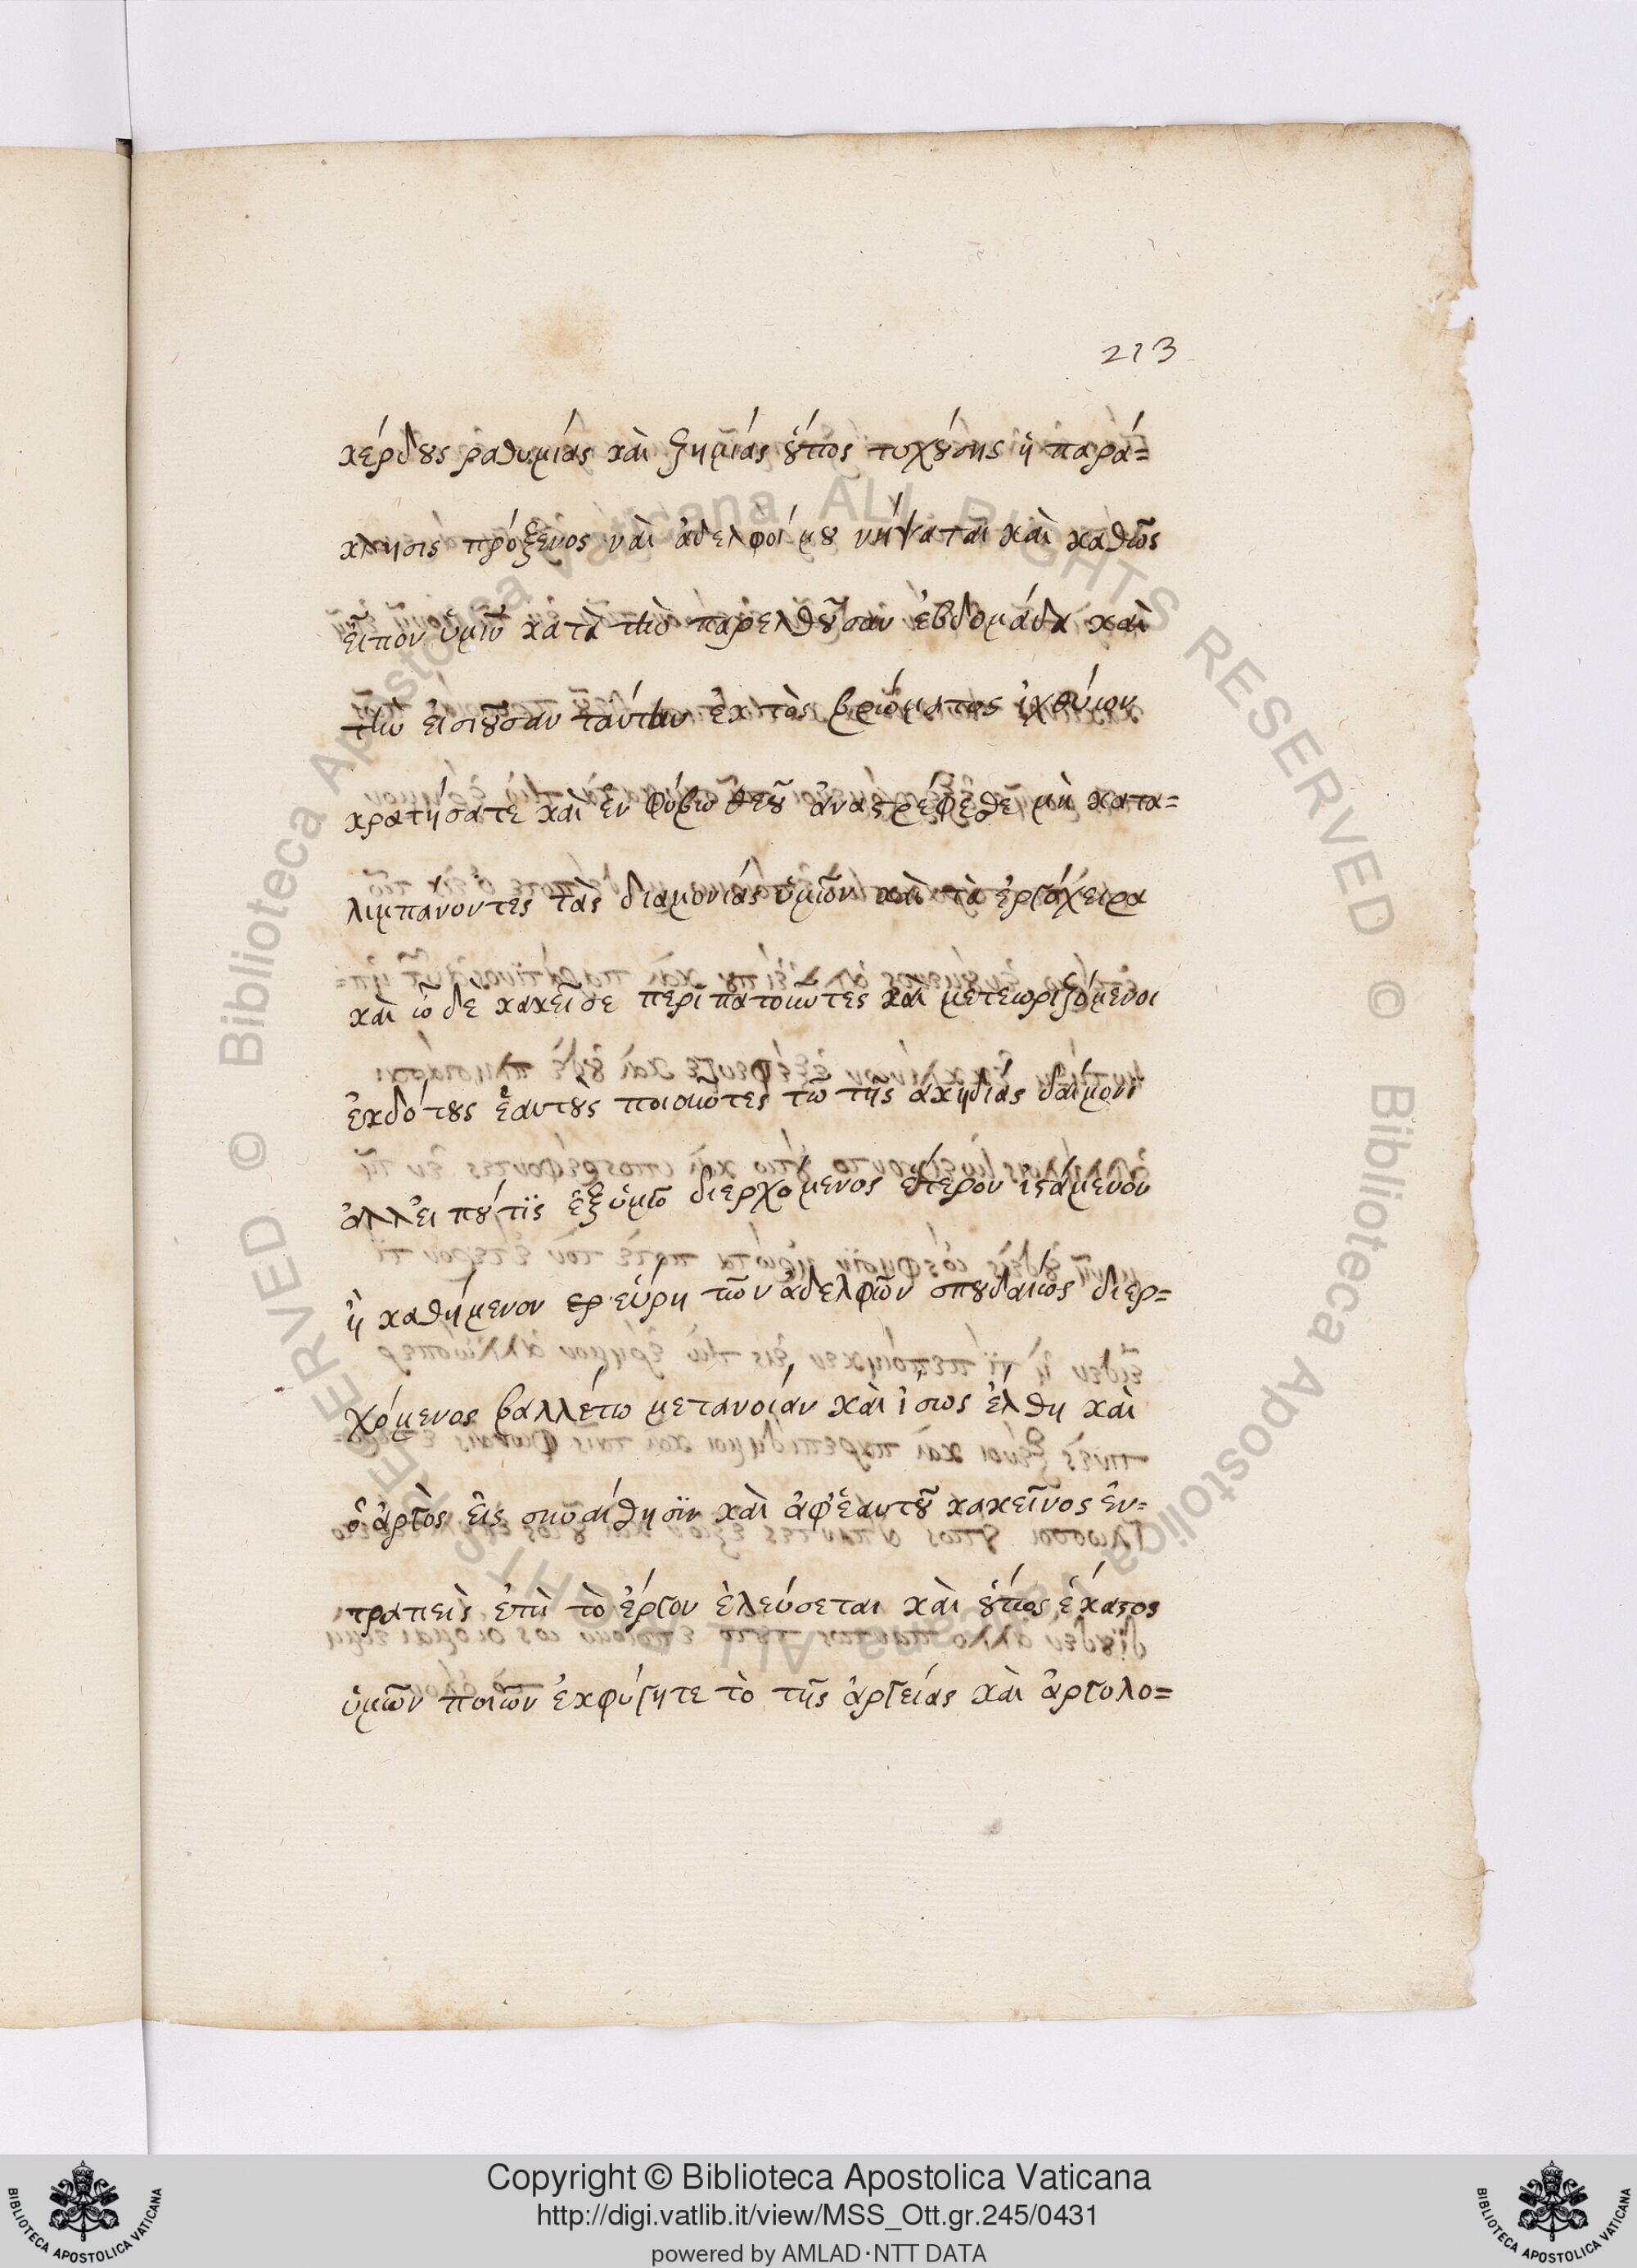 213
κέρδους ραθυμίας καὶ ζημίας οὕπος τυχούσης ἡ παρά=
κλησις πρόξενος ναὶ ἀδελφοί μου νήψαται καὶ καθῶς
εἶπον ὑμῖν κατὰ τὴν παρελθοῦσαν ἑβδομάδα καὶ
τὴν εἰσιοῦσαν ταύτην ἐκ τὸς βρώματος ἰχθύων
κρατήσατε καὶ ἐν φόβω θεοῦ ἀναστρέφεσθε μὴ κατα=
λιμπανοντες τὰς διαμονίας ὑμῶν καὶ τὰ ἐργόχειρα
καὶ ὧδε κακεῖσε περιπατοιῶτες καὶ μετεωριζόμενοι
ἐκδότους ἑαυτοὺς ποιοιῶτες τῶ τῆς ἀκηδίας δαίμονι
ἀλλ' εἰ πού τὶς ἐξ ὑμῶ διερχόμενος ἕτερον ἱστάμενον
ἢ καθήμενον εὕρη τῶν ἀδελφῶν σπουδαίως διερ=
χόμενος βαλλέτω μετανοίαν καὶ ἴσως ἔλθη καὶ
ὁ ἀργὸς εἰς συναίθησϊν καὶ ἀφ' ἑαυτοῦ κακεῖνος ἐν=
τραπεὶς ἐπὶ τὸ ἔργον ἐλεύσεται καὶ οὕτως ἕκαστος
ὑμῶν ποιῶν ἐκφύγητε τὸ τῆς ἀργείας καὶ ἀργολο=
© Biblioteca Apostolica Vaticana ALL RIGHTS RESERVED
© Biblioteca Apostolica Vaticana ALL RIGHTS RESERVED
Copyright © Biblioteca Apostolica Vaticana
http://digi.vatlib.it/view/MSS_Ott.gr.245/0431
powered by AMLAD·NTT DATA
BIBLIOTECA APOSTOLICA VATICANA
BIBLIOTECA APOSTOLICA VATICANA